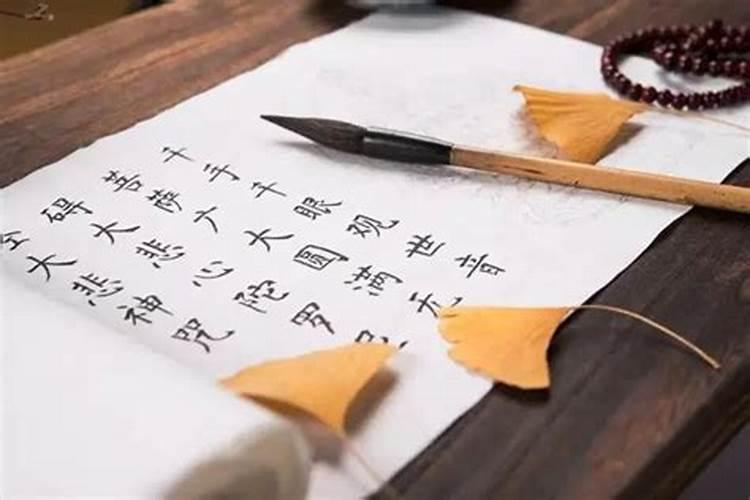 千手千眼观世音
菩萨广大圆满无
碍大悲心陀罗
全大悲神咒